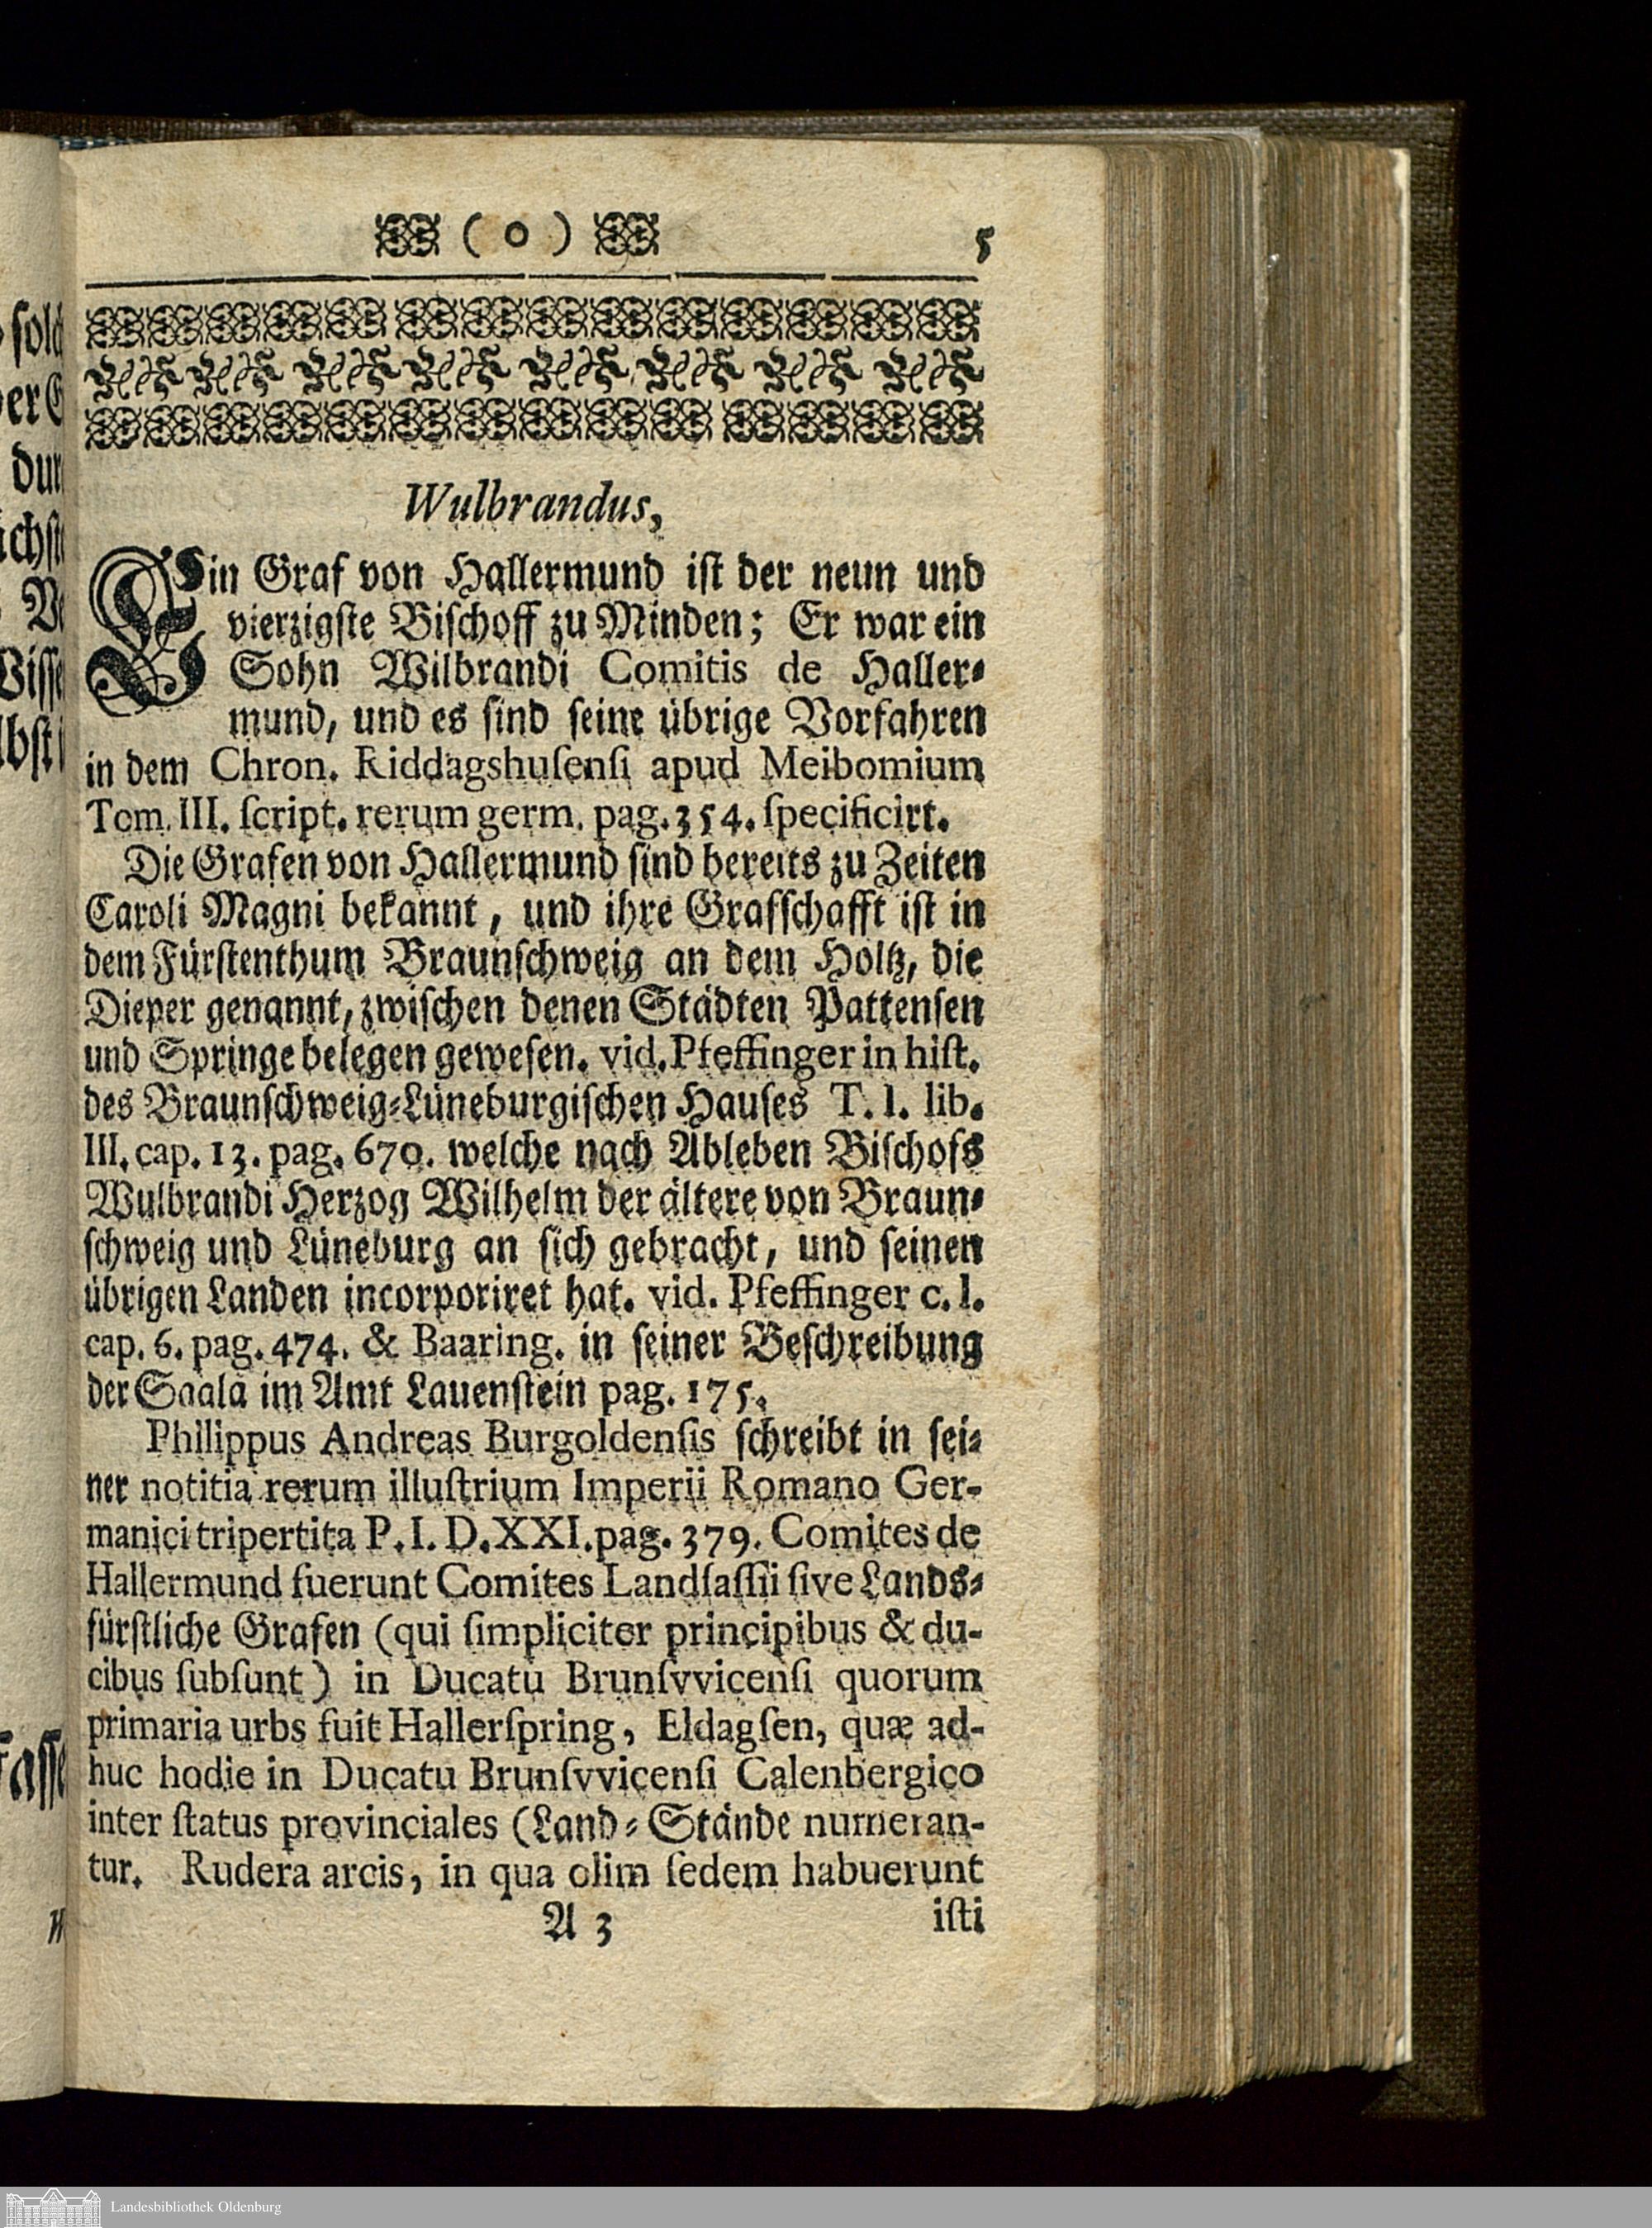 ( o ) 5
Wulbrandus,
Ein Graf von Hallermund ist der neun und
vierzigste Bischoff zu Minden; Er war ein
Sohn Wilbrandi Comitis de Haller⸗
mund, und es sind seine übrige Vorfahren
in dem Chron. Riddagshuſenſi apud Meibomium
Tom. III. ſcript. rerum germ. pag. 354. ſpecificirt.
Die Grafen von Hallermund ſind bereits zu Zeiten
Caroli Magni bekannt, und ihre Grafſchafft iſt in
dem Fürſtenthum Braunſchweig an dem Holtz, die
Dieper genannt, zwiſchen denen Städten Pattenſen
und Springe belegen geweſen. vid. Pfeffinger in hiſt.
des Braunſchweig⸗Lüneburgiſchen Hauſes T. I. lib.
III. cap. 13. pag. 670. welche nach Ableben Biſchofs
Wulbrandi Herzog Wilhelm der ältere von Braun⸗
ſchweig und Lüneburg an ſich gebracht, und ſeinen
übrigen Landen incorporiret hat. vid. Pfeffinger c. l.
cap. 6. pag. 474. & Baaring. in ſeiner Beſchreibung
der Saala im Amt Lauenſtein pag. 175.
Philippus Andreas Burgoldenſis ſchreibt in ſei⸗
ner notitia rerum illuſtrium Imperii Romano Ger-
manici tripertita P. I. D. XXI. pag. 379. Comites de
Hallermund fuerunt Comites Landſaſſii ſive Lands⸗
fürſtliche Grafen (qui ſimpliciter principibus & du-
cibus ſubſunt) in Ducatu Brunſvvicenſi quorum
primaria urbs fuit Hallerſpring, Eldagſen, quæ ad-
huc hodie in Ducatu Brunſvvicenſi Calenbergico
inter ſtatus provinciales (Land⸗Stände numeran-
tur. Rudera arcis, in qua olim ſedem habuerunt
A 3 iſti
Landesbibliothek Oldenburg